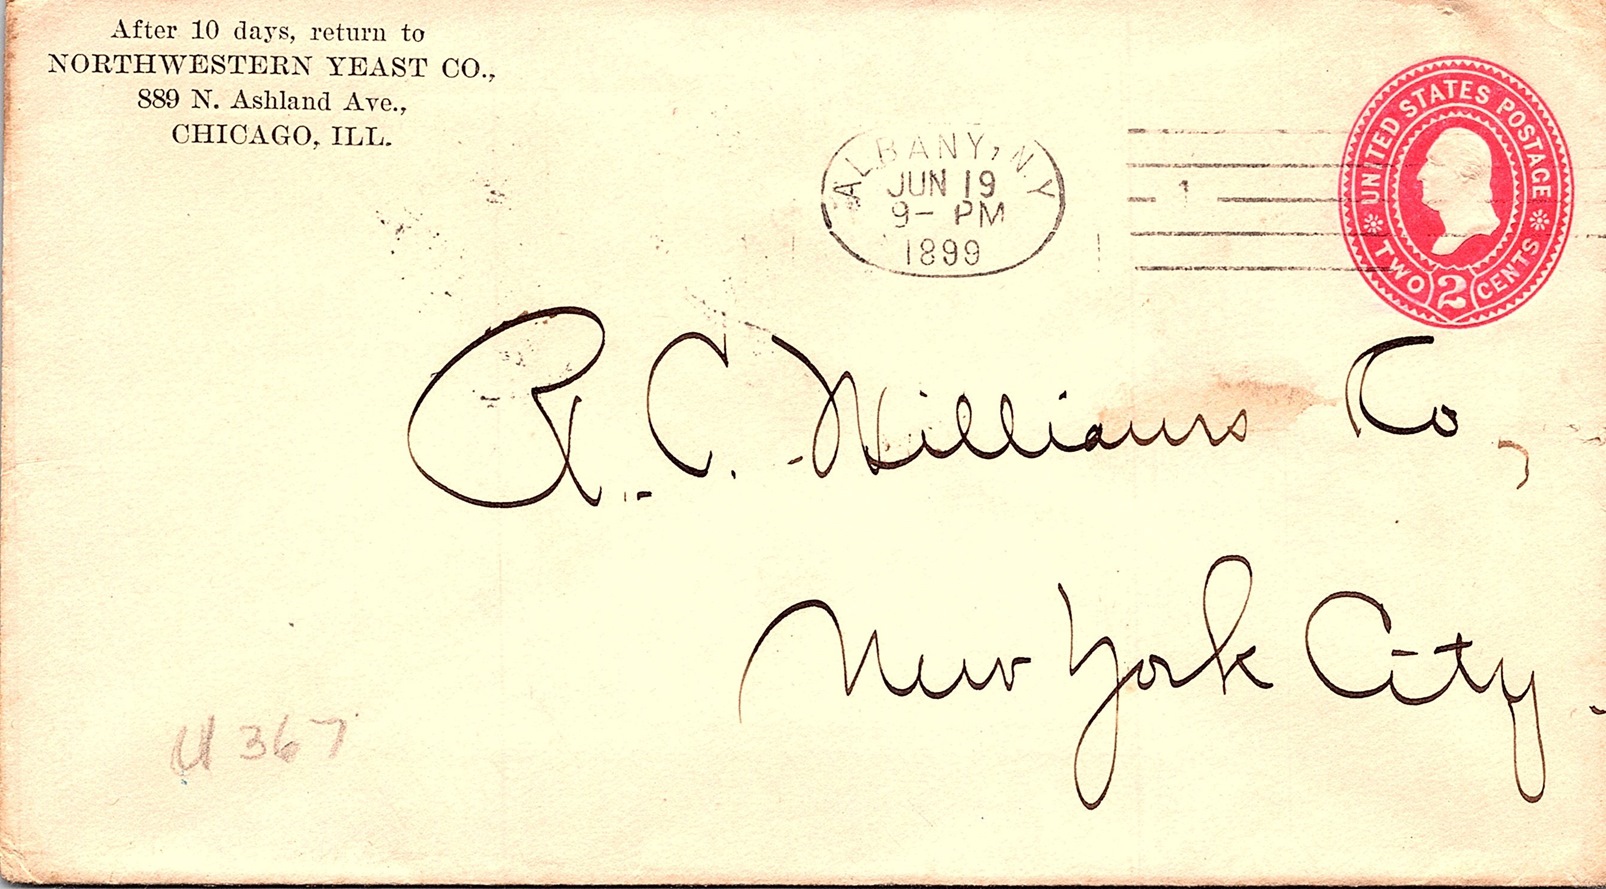 After 10 days, return to
NORTHWESTERN YEAST CO.,
889 N. Ashland Ave.,
CHICAGO, ILL.
ALBANY, N.Y
JUN 19
9- PM
1899
1
UNITED STATES POSTAGE
TWO 2 CENTS
R. C. Williams Co,
New York City.
U 367